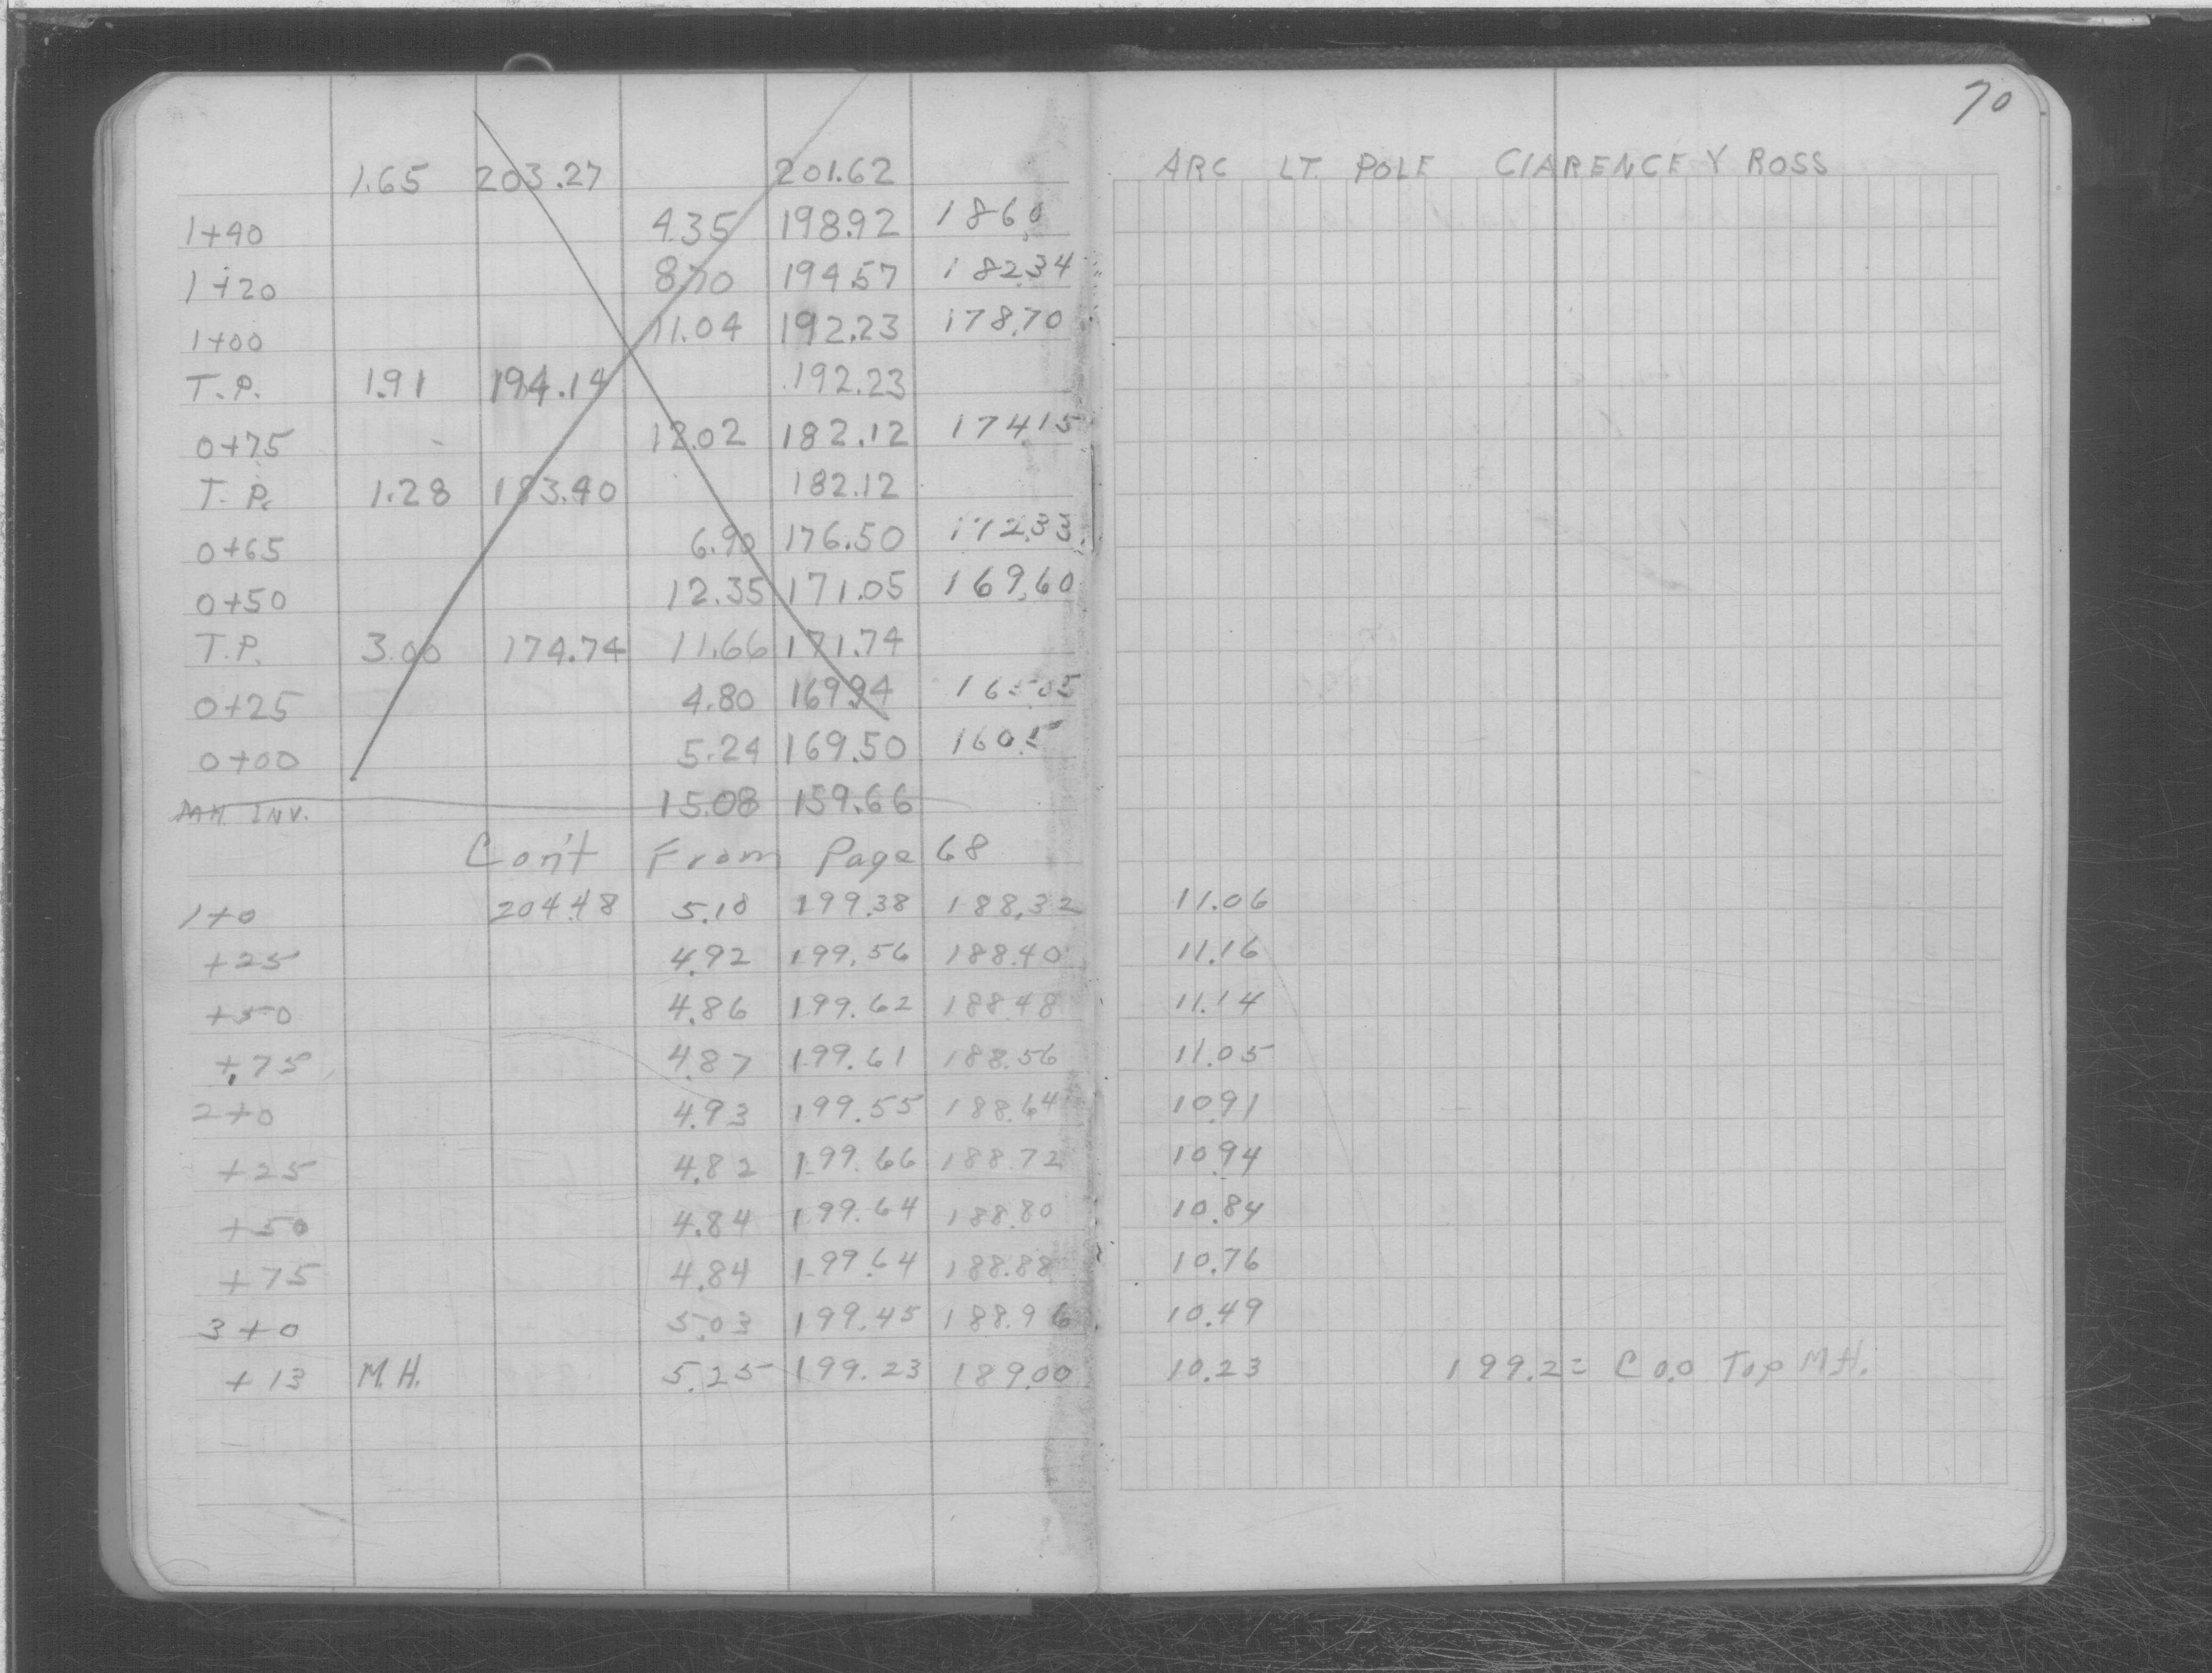 70
1.65 203.27 201.62 ARC LT. POLE CLARENCE Y ROSS
1+40 4.35 198.92 186.0
1+20 8.70 194.57 182.34
1+00 11.04 192.23 178.70
T.P. 1.91 194.14 192.23
0+75 12.02 182.12 174.15
T.P. 1.28 183.40 182.12
0+65 6.90 176.50 172.33
0+50 12.35 171.05 169.60
T.P. 3.00 174.74 11.66 171.74
0+25 4.80 169.94 165.05
0+00 5.24 169.50 160.5
M.H. INV. 15.08 159.66
Con't From Page 68
1+0 204.48 5.10 199.38 188.32 11.06
+25 4.92 199.56 188.40 11.16
+50 4.86 199.62 188.48 11.14
+75 4.87 199.61 188.56 11.05
2+0 4.93 199.55 188.64 10.91
+25 4.82 199.66 188.72 10.94
+50 4.84 199.64 188.80 10.84
+75 4.84 199.64 188.88 10.76
3+0 5.03 199.45 188.96 10.49
+13 M.H. 5.25 199.23 189.00 10.23 199.2 = C 0.0 Top M.H.